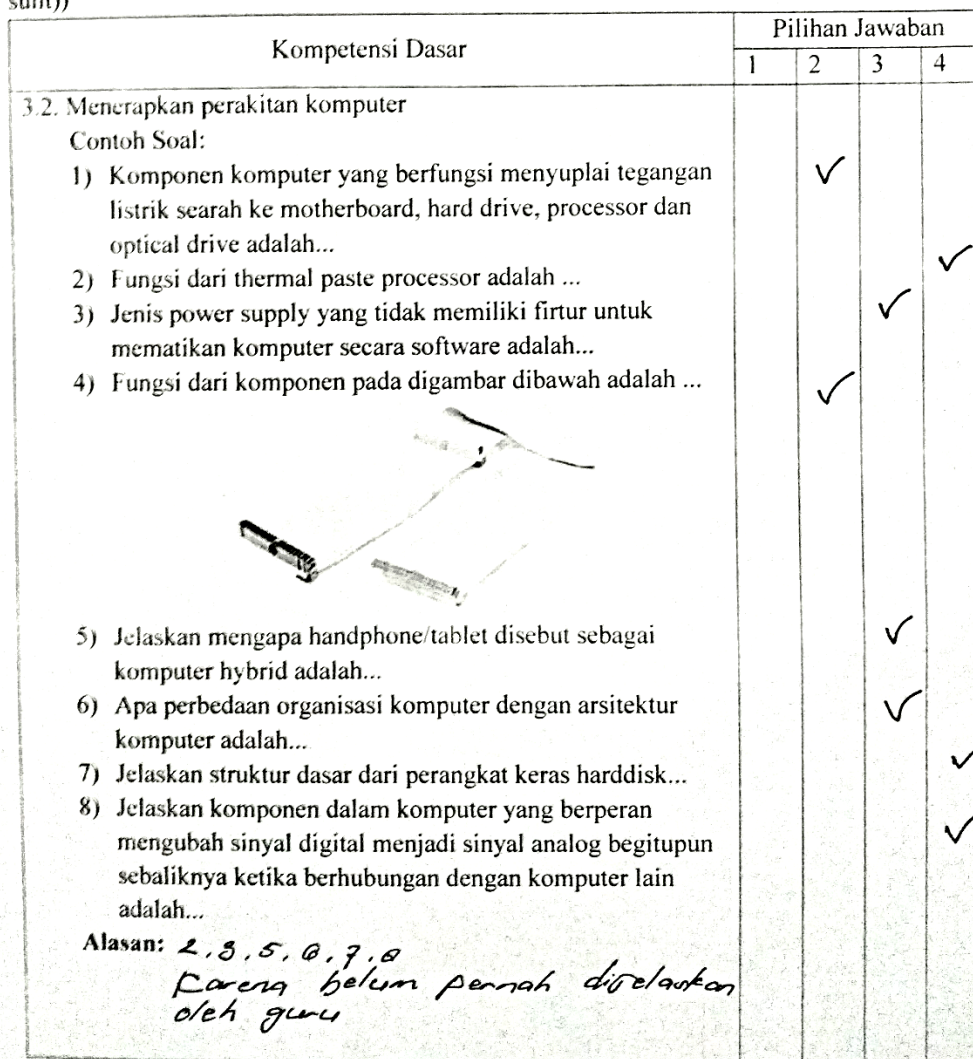 Kompetensi Dasar
Pilihan Jawaban
1 2 3 4
3.2. Menerapkan perakitan komputer
Contoh Soal:
1) Komponen komputer yang berfungsi menyuplai tegangan
listrik searah ke motherboard, hard drive, processor dan
optical drive adalah...
2) Fungsi dari thermal paste processor adalah ...
3) Jenis power supply yang tidak memiliki firtur untuk
mematikan komputer secara software adalah...
4) Fungsi dari komponen pada digambar dibawah adalah ...
5) Jelaskan mengapa handphone/tablet disebut sebagai
komputer hybrid adalah...
6) Apa perbedaan organisasi komputer dengan arsitektur
komputer adalah...
7) Jelaskan struktur dasar dari perangkat keras harddisk...
8) Jelaskan komponen dalam komputer yang berperan
mengubah sinyal digital menjadi sinyal analog begitupun
sebaliknya ketika berhubungan dengan komputer lain
adalah...
Alasan: 2, 3, 5, 6, 7, 8
Karena belum pernah dijelaskan
oleh guru